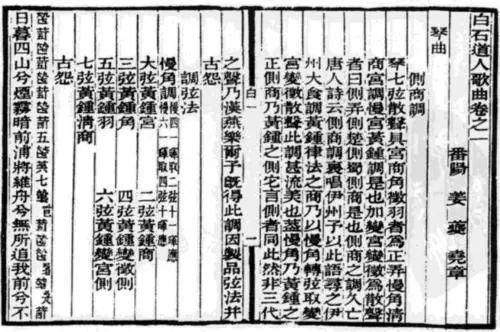 白石道人歌曲卷之一
番陽 姜 夔 堯章
琴曲
側商調
琴七弦散聲具宮商角徵羽者為正弄慢角清
商宮調慢宮黃鍾調是也加變宮變徵為散聲
者曰側弄側楚側蜀側商是也側商之調久亡
唐人詩云側商調裏唱伊州予以此語尋之伊
州大食調黃鍾律法之商乃以慢角轉弦取變
宮變徵散聲此調甚流美也葢慢角乃黃鍾之
正側商乃黃鍾之側它言側者同此然非三代
白一
二
之聲乃漢燕樂爾予既得此調因製品弦法并
古怨
調弦法
慢角調 慢四一暉取二弦十一暉應
慢六一暉取四弦十一暉應
大弦黃鍾宮 二弦黃鍾商
三弦黃鍾角 四弦黃鍾變徵側
五弦黃鍾羽 六弦黃鍾變宮側
七弦黃鍾清商
古怨
日暮四山兮煙霧暗前浦將維舟兮無所追我前兮不